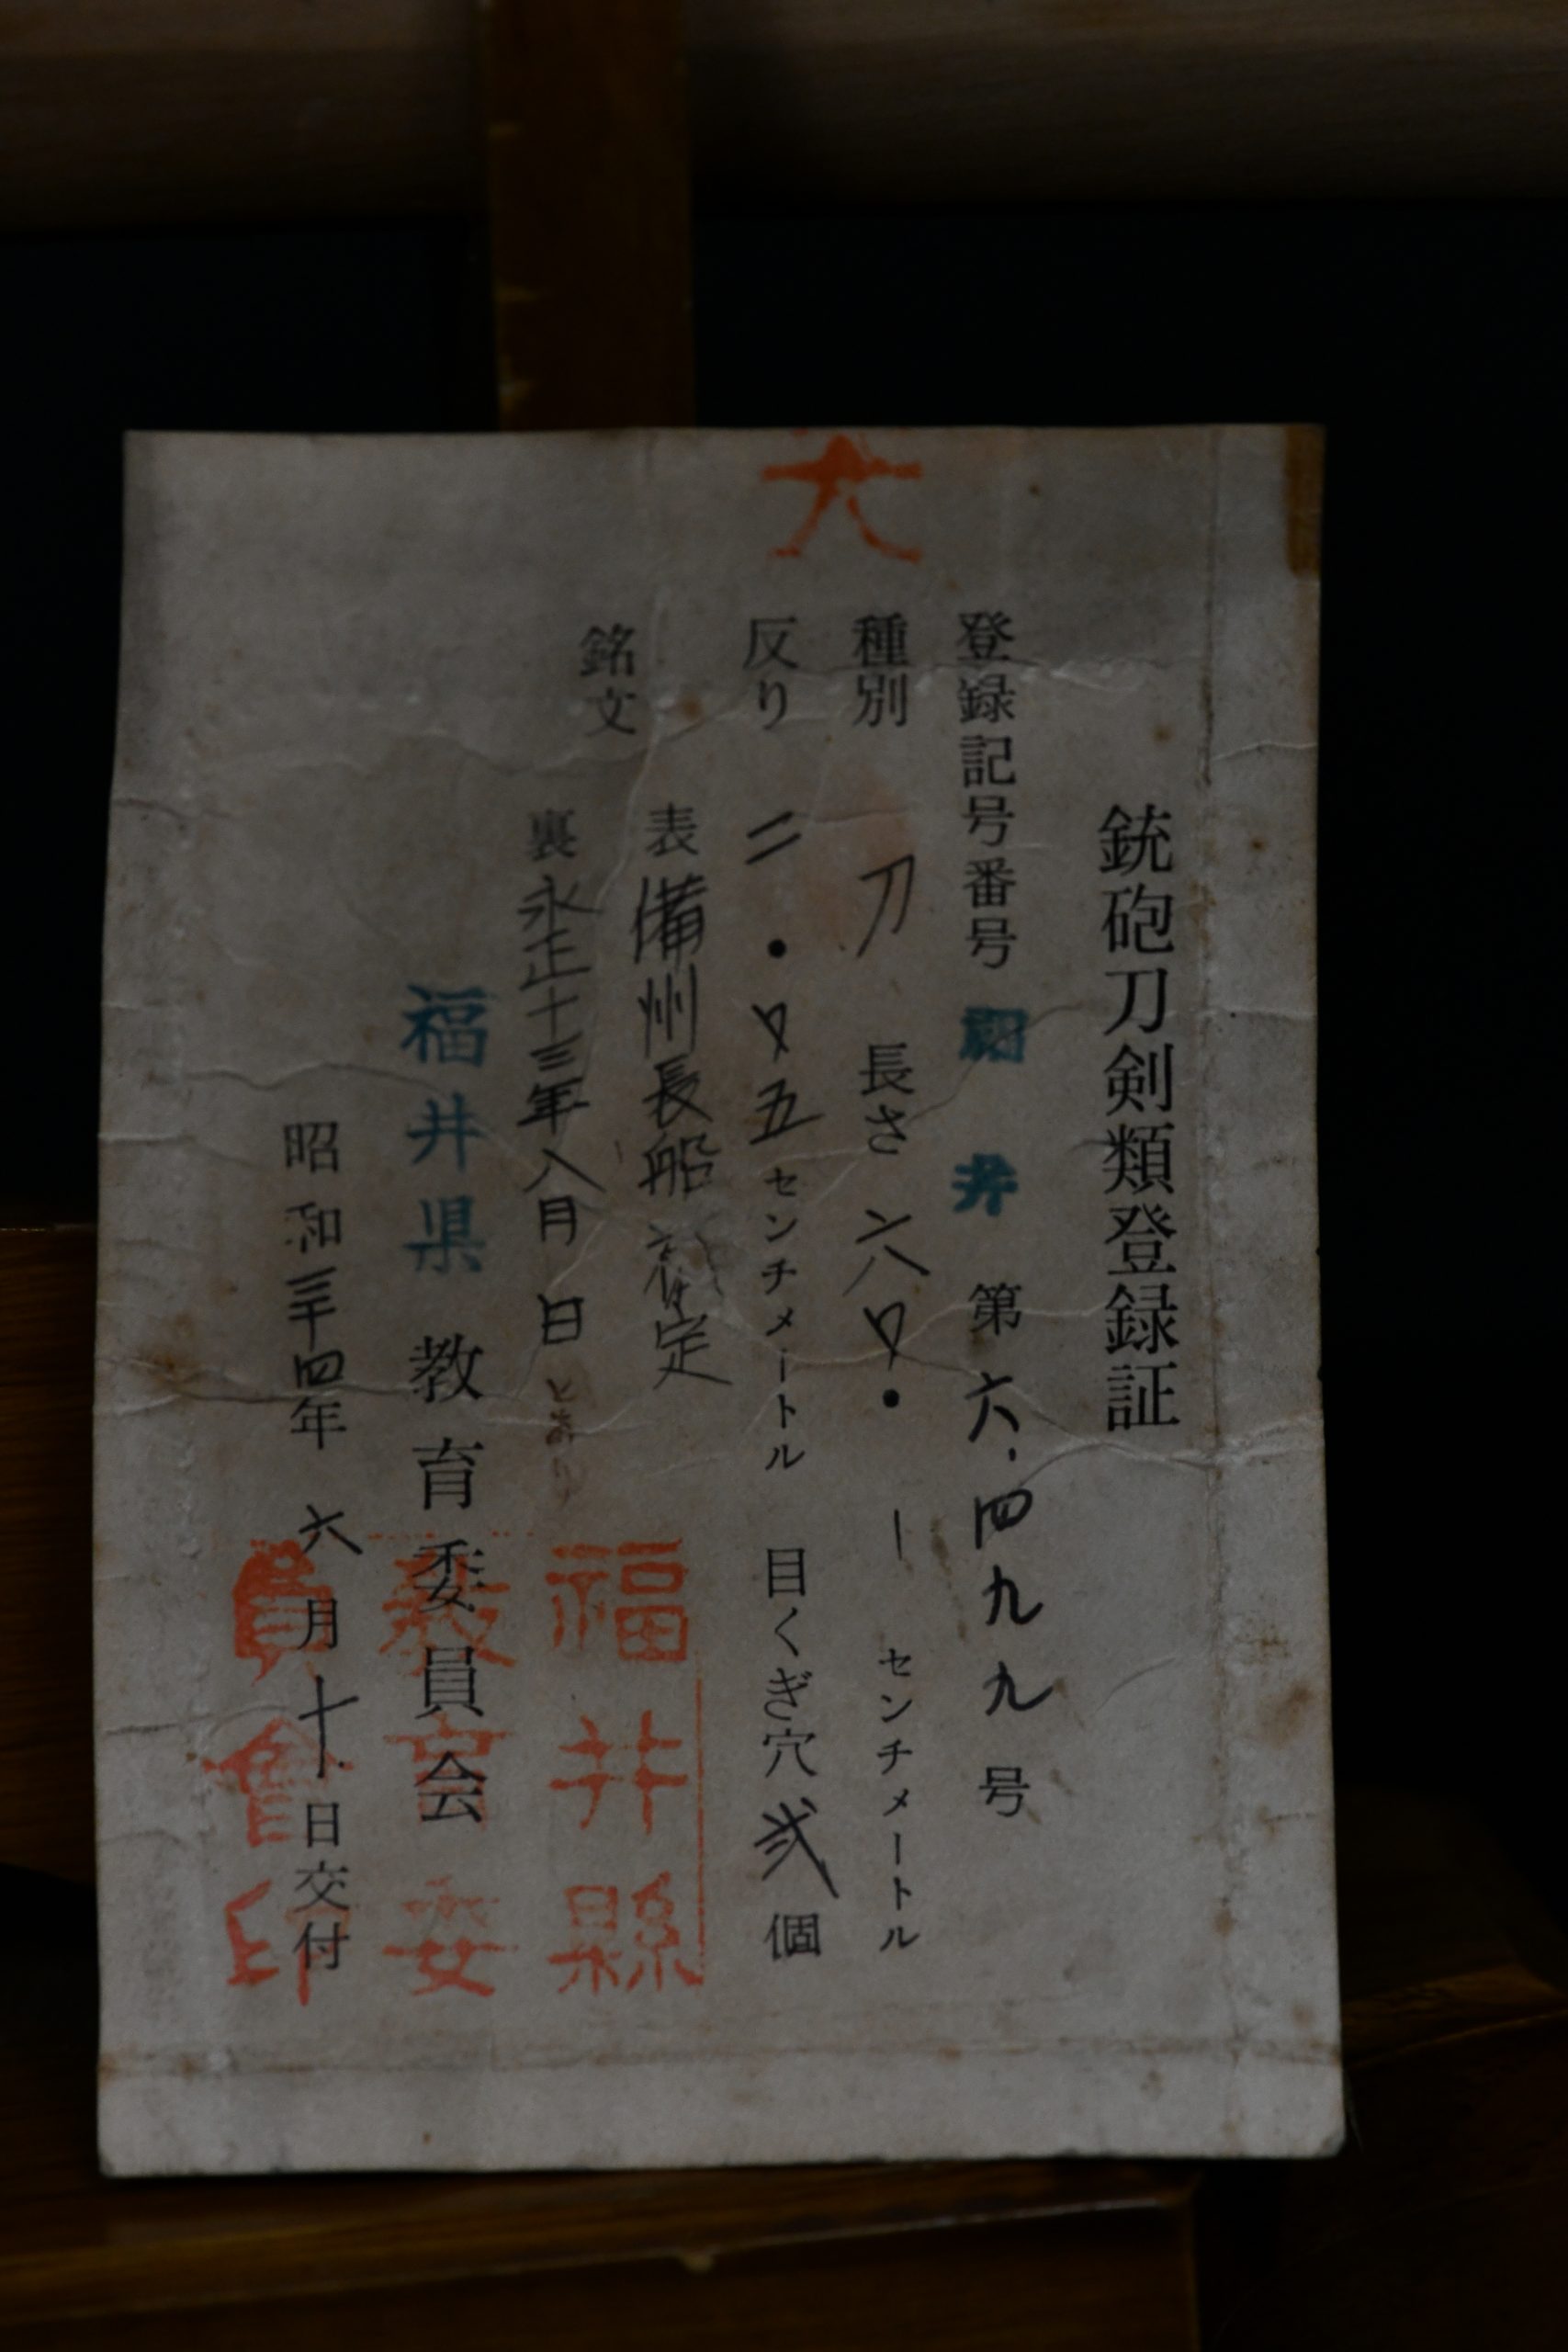 大
銃砲刀剣類登録証
登録記号番号 福井 第六.四九九号
種別 刀 長さ 六〇・一センチメートル
反り 二・〇五センチメートル 目くぎ穴 弐個
銘文
表 備州長船祐定
裏 永正十三年八月日 とあり
福井県教育委員会
昭和三十四年六月十日交付
福井縣
教育委
員會印